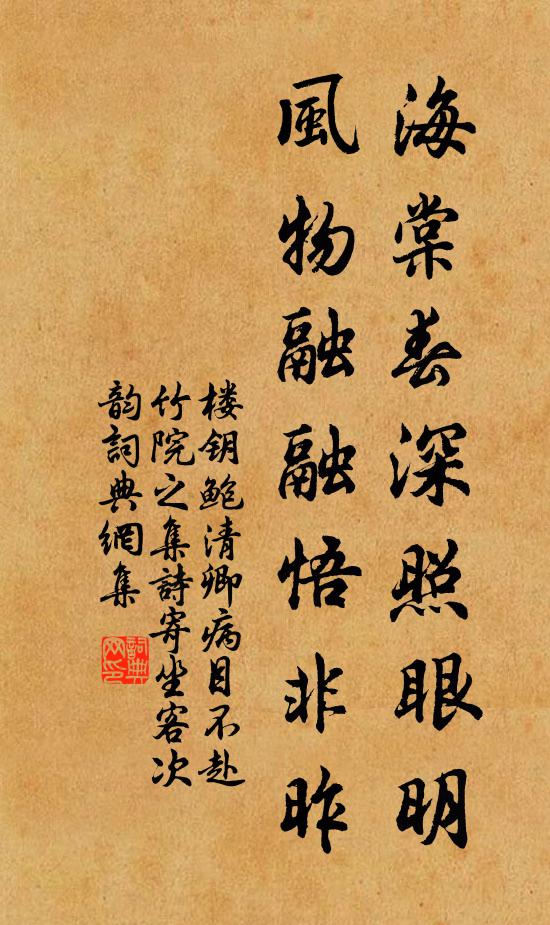 海棠春深照眼明
風物融融悟非昨
楼钥鲍清卿病目不赴
竹院之集詩寄坐客次
韵詞典網集
詞典
网印